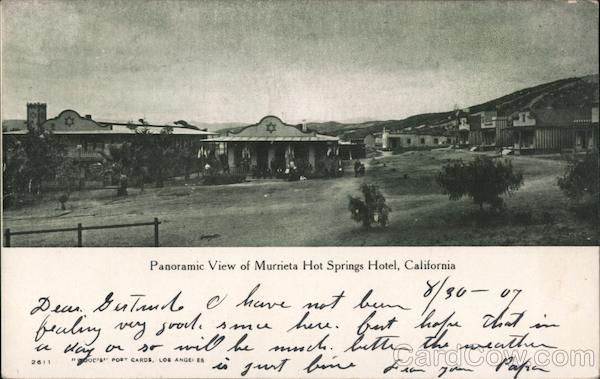 Panoramic View of Murrieta Hot Springs Hotel, California
8/30 - 07
Dear Gertrude I have not been
fealing very good. since here. but hope That in
a day or so will be much. better the weather
is just fine Dear your Papa
2611 "WOOD'S" POST CARDS, LOS ANGELES
CardCow.com